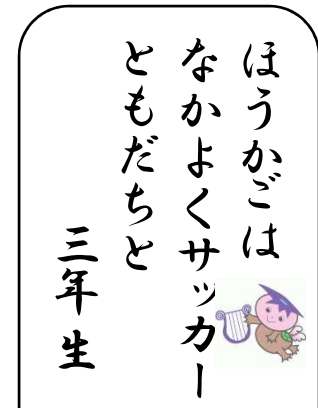 ほうかごは
なかよくサッカー
ともだちと
三年生